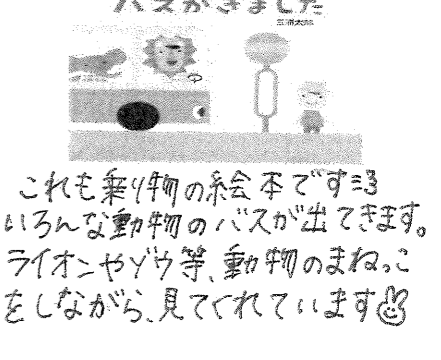 バスがきました
三浦太郎
これも乗り物の絵本です
いろんな動物のバスが出てきます。
ライオンやゾウ等、動物のまねっこ
をしながら、見てくれています